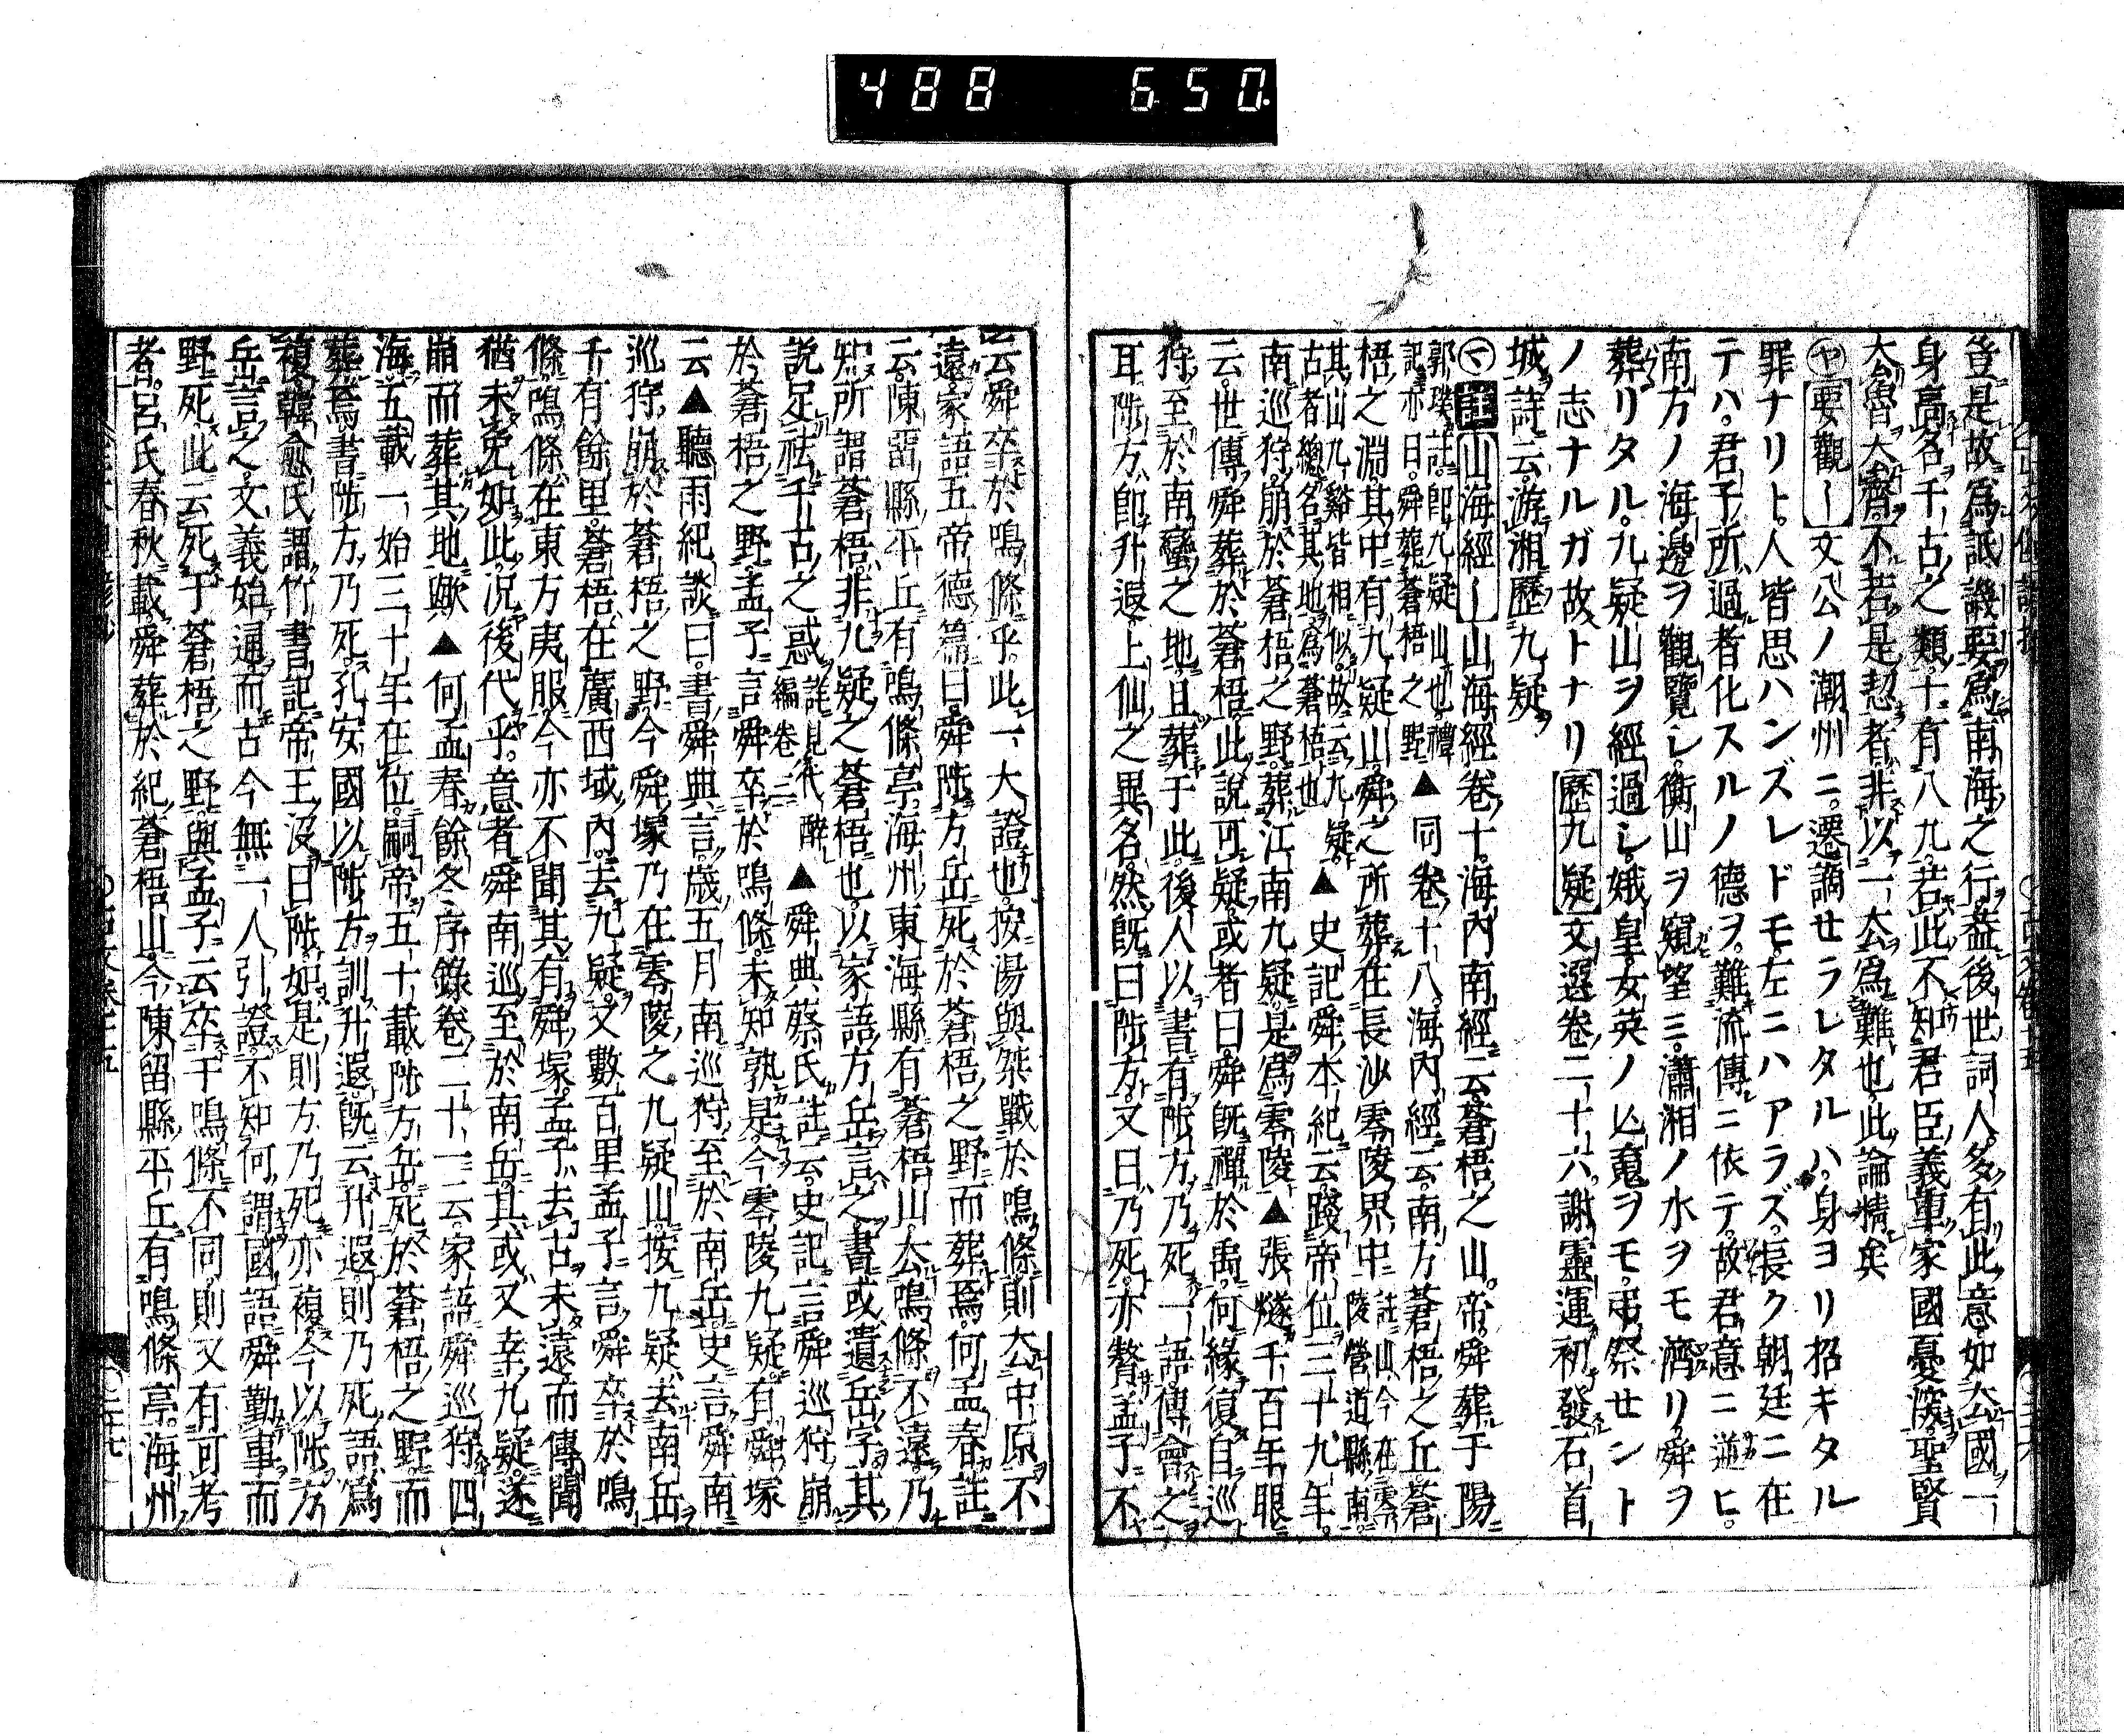 488 650
豈是故爲詆譏要爲南海之行益後世詞人多有此意如去國一
身高名千古之類十有八九若此不知君臣義重家國憂深聖賢
去魯去齊不若是恝者非以一去爲難也此論精矣
㋳要觀ー文公ノ潮州ニ遷謫セラレタルハ身ヨリ招キタル
罪ナリト人皆思ハンズレドモ左ニハアラズ長ク朝廷ニ在
テハ君子所過者化スルノ德ヲ難流傳ニ依テ故君意ニ逆ヒ
南方ノ海邊ヲ觀覽シ衡山ヲ窺望ミ瀟湘ノ水ヲモ濟リ舜ヲ
葬リタル九疑山ヲ經過シ娥皇女英ノ亡魂ヲモ弔祭セント
ノ志ナルガ故トナリ歷九疑文選卷二十六謝靈運初發石首
城詩云游湘歷九疑
㋮註山海經ー山海經卷十海內南經云蒼梧之山帝舜葬于陽
郭璞註卽九疑山也禮記亦曰舜葬蒼梧之野▲同卷十八海內經云南方蒼梧之丘蒼
梧之淵其中有九疑山舜之所葬在長沙零陵界中註山今在零陵營道縣南
其山九谿皆相似故云九疑古者總名其地爲蒼梧也▲史記舜本紀云踐帝位三十九年
南巡狩崩於蒼梧之野葬江南九疑是爲零陵▲張燧千百年眼
云世傳舜葬於蒼梧此說可疑或者曰舜旣禪於禹何緣復自巡
狩至於南蠻之地且葬于此後人以書有陟方乃死一語傅會之
耳陟方卽升遐上仙之異名然旣曰陟方又曰乃死亦贅孟子不
云舜卒於鳴條乎此一大證也按湯與桀戰於鳴條則去中原不
遠家語五帝德篇曰舜陟方岳死於蒼梧之野而葬焉何孟春註
云陳留縣平丘有鳴條亭海州東海縣有蒼梧山去鳴條不遠乃
知所謂蒼梧非九疑之蒼梧也以家語方岳言之書或遺岳字其
說足祛千古之惑註見代醉編卷二▲舜典蔡氏註云史記言舜巡狩崩
於蒼梧之野孟子言舜卒於鳴條未知孰是今零陵九疑有舜塚
云▲聽雨紀談曰書舜典言歲五月南巡狩至於南岳史言舜南
巡狩崩於蒼梧之野今舜塚乃在零陵之九疑山按九疑去南岳
千有餘里蒼梧在廣西域內去九疑又數百里孟子言舜卒於鳴
條鳴條在東方夷服今亦不聞其有舜塚孟子去古未遠而傳聞
猶未免如此況後代乎意者舜南巡至於南岳其或又幸九疑遂
崩而葬其地歟▲何孟春餘冬序錄卷二十一云家語舜巡狩四
海五載一始三十年在位嗣帝五十載陟方岳死於蒼梧之野而
葬焉書陟方乃死孔安國以陟方訓升遐旣云升遐則乃死語爲
複韓愈氏謂竹書記帝王沒曰陟如是則方乃死亦複今以陟方
岳言之文義始通而古今無一人引證不知何謂國語舜勤事而
野死此云死于蒼梧之野與孟子云卒于鳴條不同則又有可考
者呂氏春秋載舜葬於紀蒼梧山今陳留縣平丘有鳴條亭海州